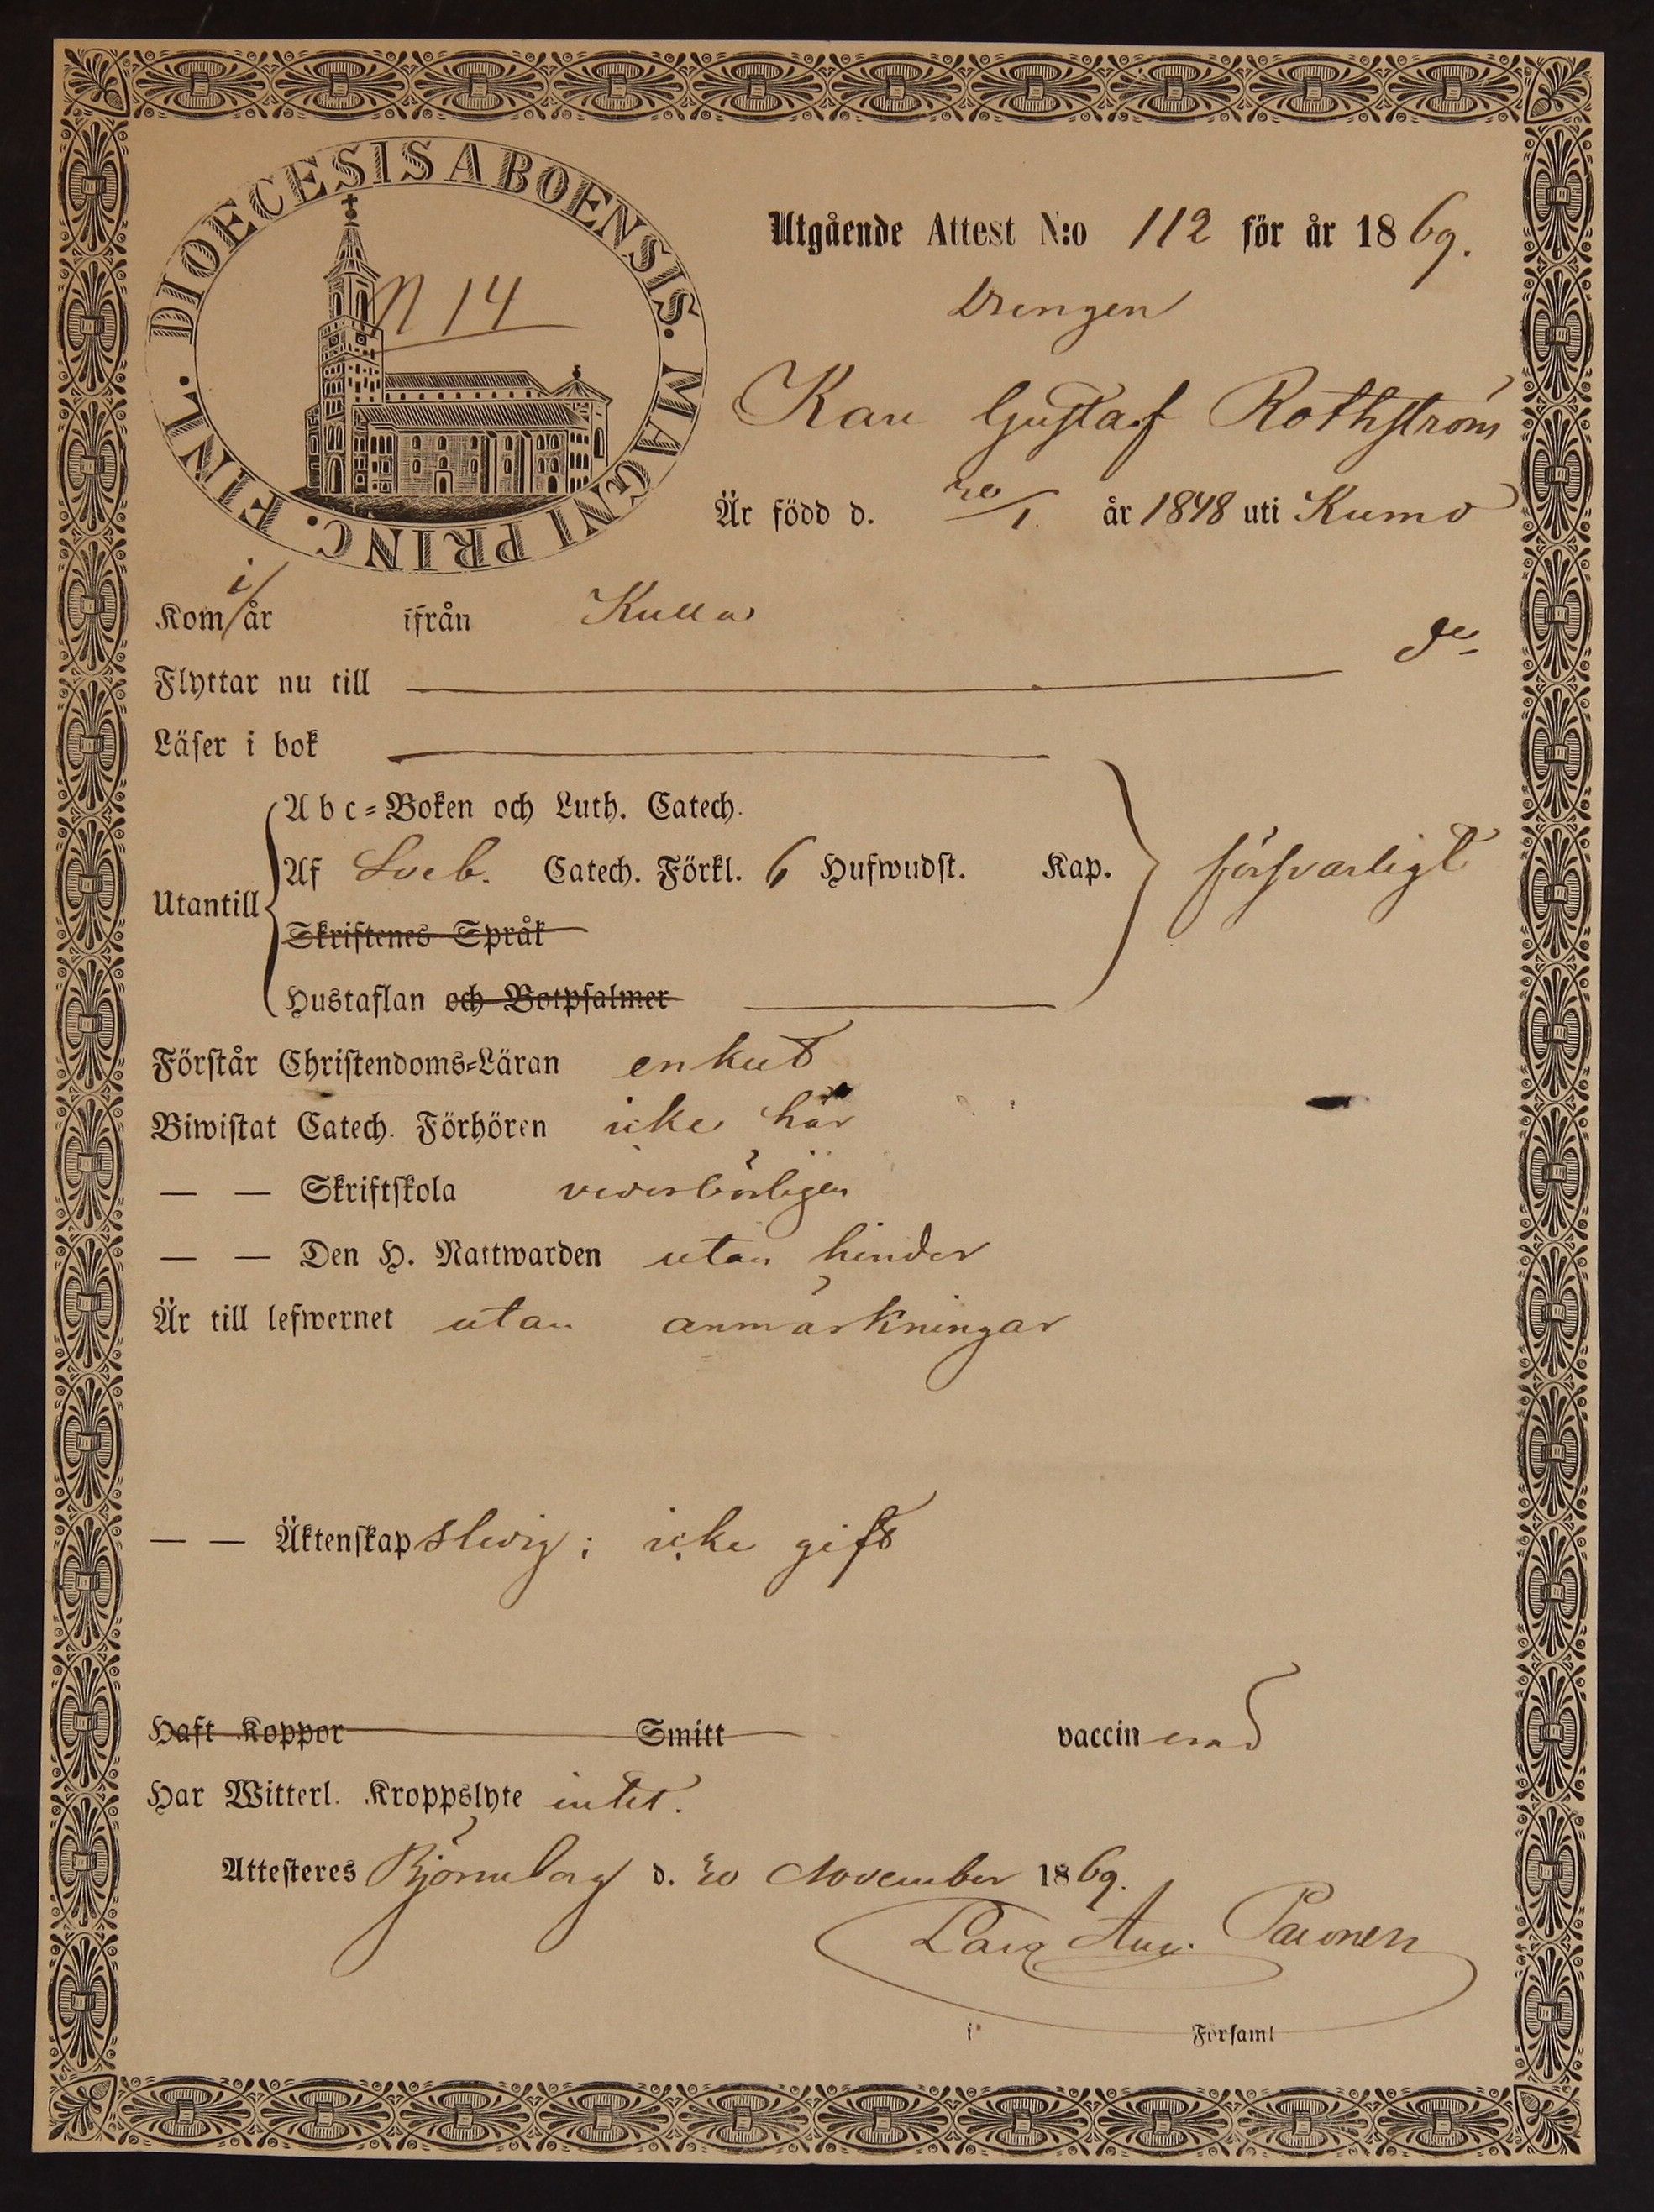 DIOECESIS ABOENSIS. MAGNI PRINC. FINL.
N 14
Utgående Attest N:o 112 för år 1869.
Drengen
Karl Gustaf Rothström
Är född d. 20/1. år 1848 uti Kumo
Kom i/år ifrån Kulla
Flyttar nu till
Läser i bok
Abc=Boken och Luth. Catech.
Utantill Af Sveb. Catech. Förkl. 6 Hufwudst. Kap. försvarligt
Skriftenes Språk
Hustaflan och Botpsalmer
Förstår Christendoms=Läran enkelt
Biwistat Catech. Förhören icke här
— — Skriftskola vederbörligen
— — Den H. Nattwarden utan hinder
Är till lefwernet utan anmärkningar
— — Äktenskap sledig; icke gift
Haft Koppor Smitt vaccinerad
Har Witterl. Kroppslyte intet.
Attesteres Björneborg d. 20 November 1869.
Lars Aug. Paronen
i Församl